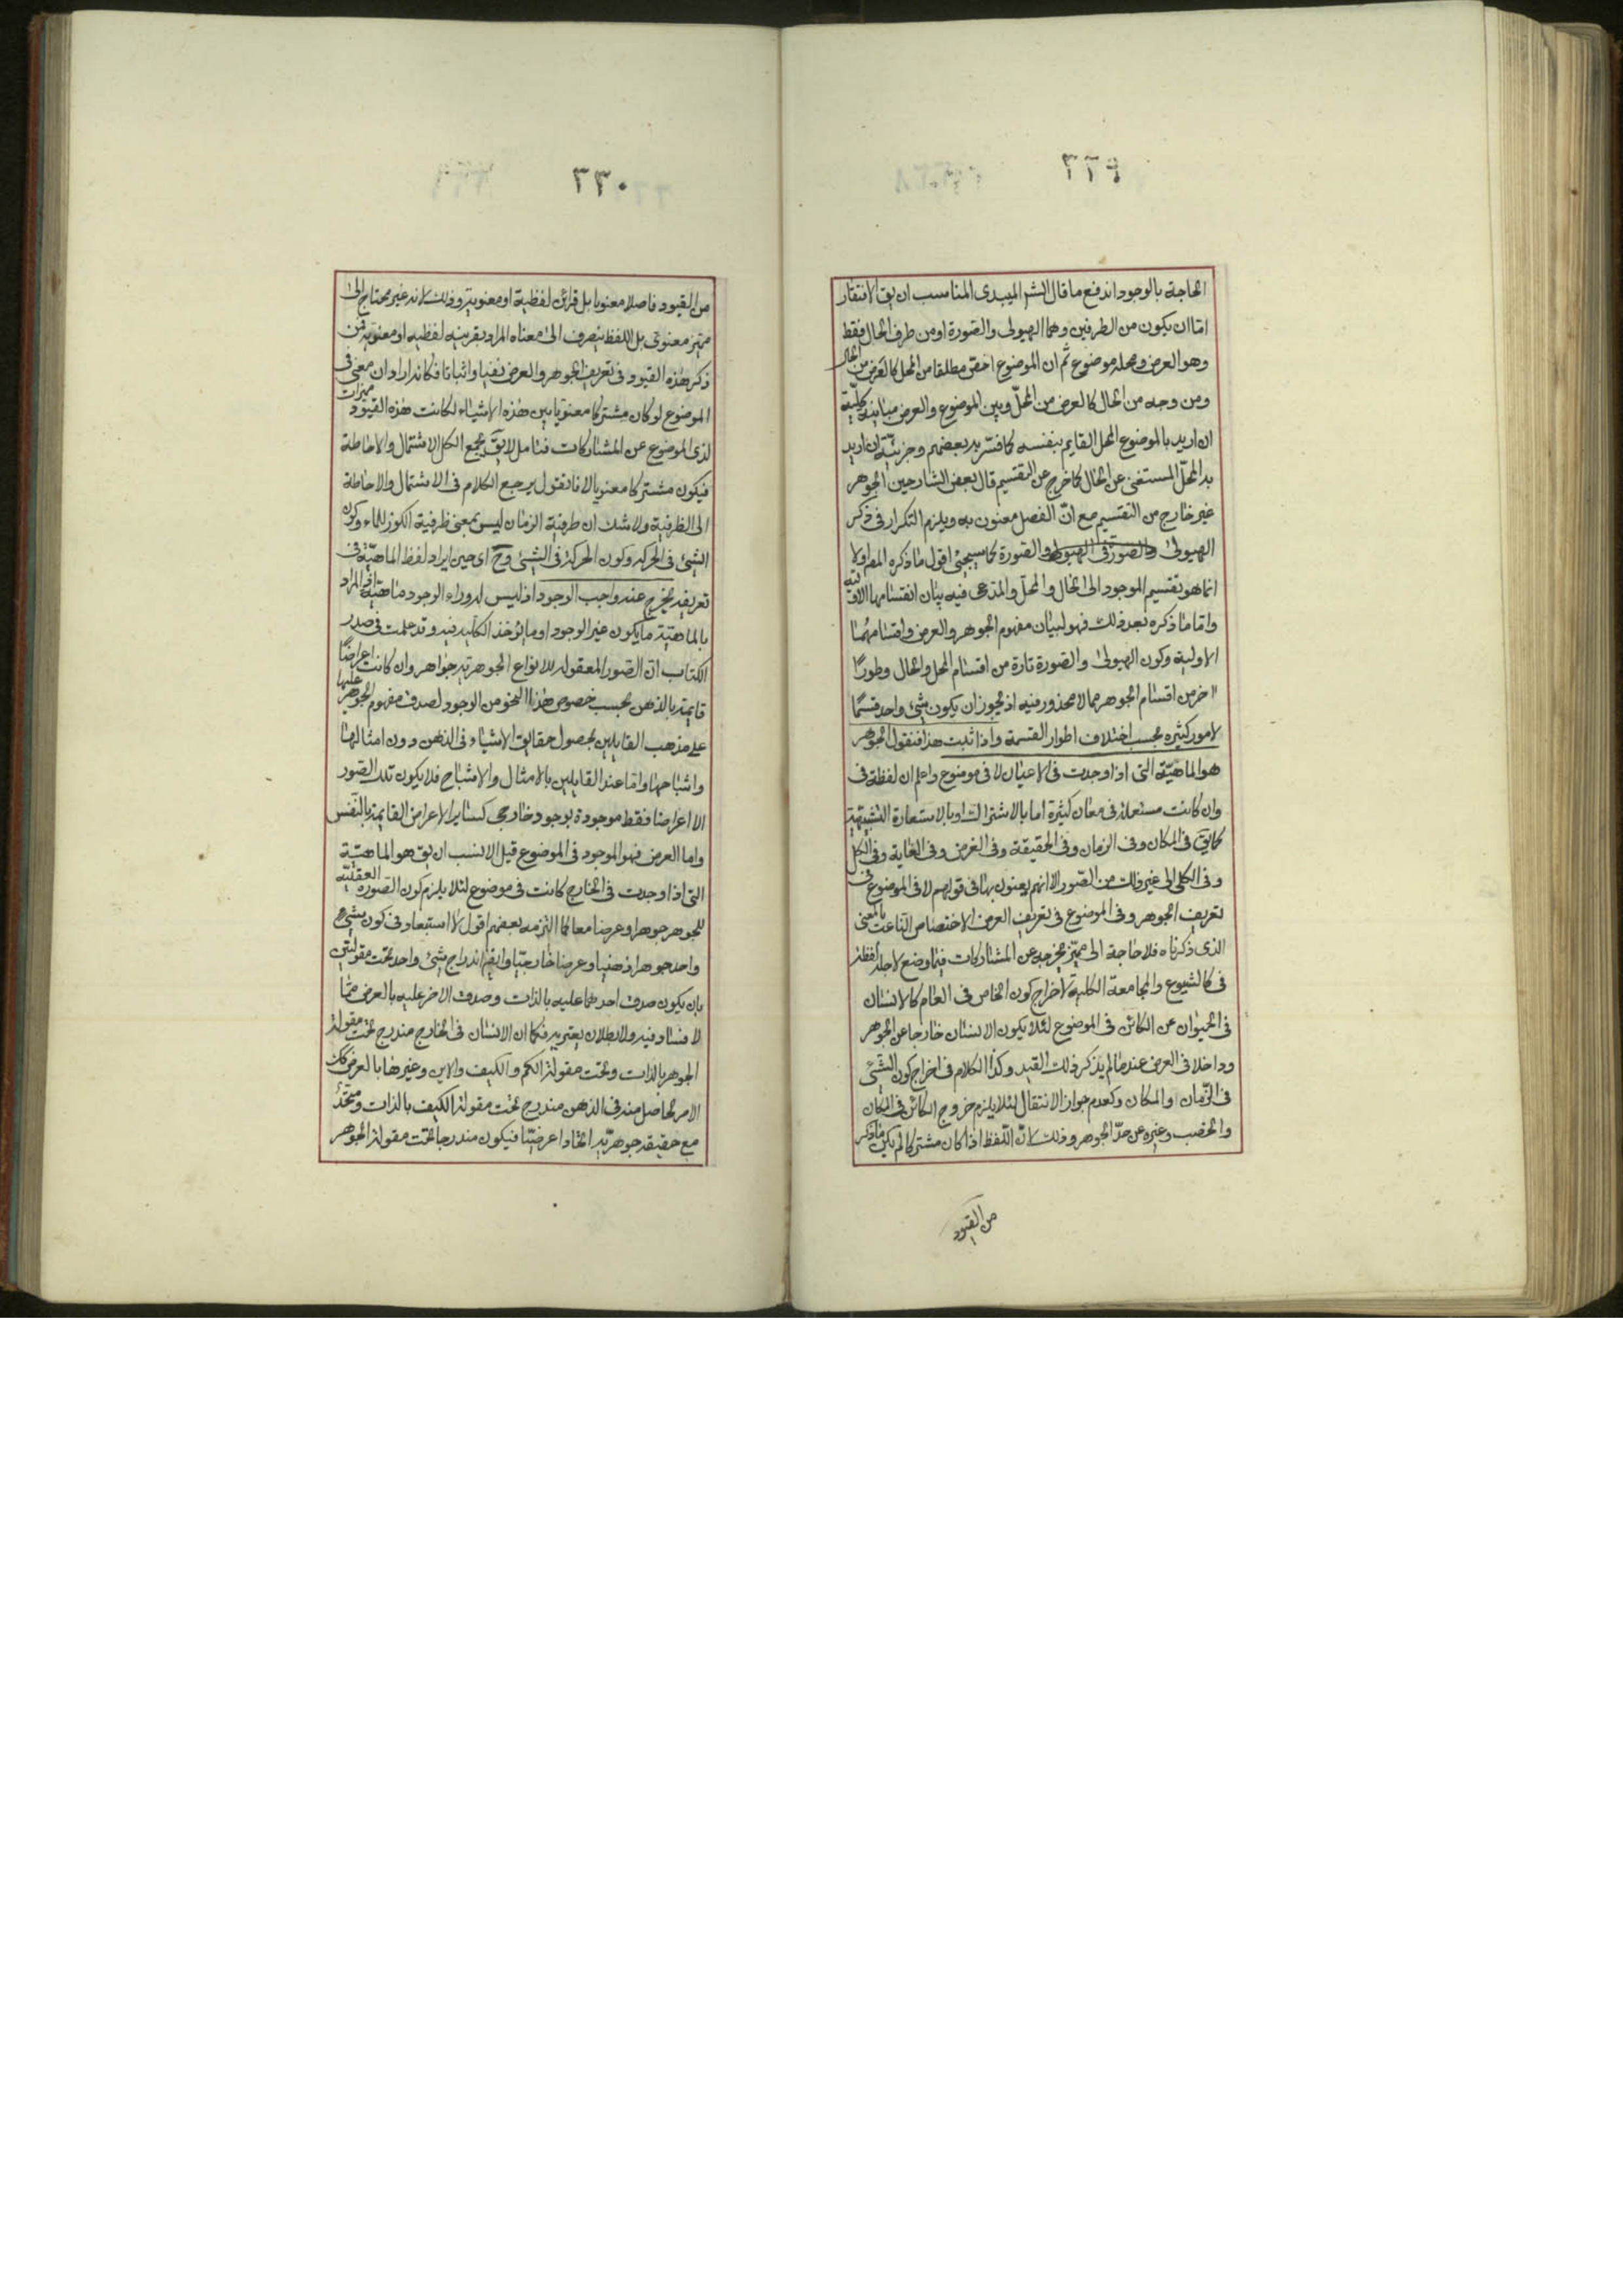 ٣٢٩
الحاجة بالوجود اندفع ما قال الشر الميبدى المناسب ان يق الافتقار
امّا ان يكون من الطرفين وهما الهيولى والصّورة او من طرف الحال فقط
وهو العرض ومحله موضوع ثم ان الموضوع اخصّ مطلقا من المحل كالعرض من الحال
ومن وجه من الحال كالعرض من المحلّ وبين الموضوع والعرض مباينة كليّة
ان اريد بالموضوع المحل القايم بنفسه كما فسّر به بعضهم وجزئيّة ان اريد
به المحلّ المستغنى عن الحال كما خرج عن التقسيم قال بعض الشارحين الجوهر
غير خارج من التقسيم مع انّ الفصل معنون به ويلزم التكرار فى ذكر
الهيولى والصورة فى الهيولى والصورة كما سيجئ اقول ما ذكره المصر اولا
انما هو تقسيم الموجود الى الحال والمحلّ والمدعى فيه بيان انقسامها الاوليّه
وامّا ما ذكره بعد ذلك فهو لبيان مفهوم الجوهر والعرض واقسامهما
الاولية وكون الهيولى والصورة تارة من اقسام المحل والحال وطورًا
اخر من اقسام الجوهر مما لا محذور فيه اذ يجوز ان يكون شئ واحد قسمًا
لامور كثيره بحسب اختلاف اطوار القسمة واذا ثبت هذا فنقول الجوهر
هو الماهيّة التى اذا وجدت فى الاعيان لا فى موضوع واعلم ان لفظة فى
وان كانت مستعملة فى معان كثيرة اما بالاشتراك او بالاستعارة التشبيهيّة
كما يق فى المكان وفى الزمان وفى الحقيقة وفى الغرض وفى الغاية وفى الكل
وفى الكلى الى غير ذلك من الصّور الا انهم يعنون بها فى قولهم لا فى الموضوع فى
تعريف الجوهر وفى الموضوع فى تعريف العرض الاختصاص النّاعت بالمعنى
الذى ذكرناه فلا حاجة الى مميّز يخرجه عن المشاركات فيما وضع لاجله لفظة
فى كالشيوع والمجامعة الكلية لاخراج كون الخاص فى العام كالانسان
فى الحيوان عن الكائن فى الموضوع لئلا يكون الانسان خارجا عن الجوهر
وداخلا فى العرض عندما لم يذكر ذلك القيد وكذا الكلام فى اخراج كون الشئ
فى الزّمان او المكان وكعدم جواز الانتقال لئلا يلزم خروج الكائن فى المكان
والخصب وغيره عن حدّ الجوهر وذلك لانّ اللّفظ اذا كان مشتركا لم يكن ما ذكر
من القيود
٣٣٠
من القيود فاصلا معنويا بل قرائن لفظية او معنوية وذلك لانه غير محتاج الى
مميّز معنوى بل اللفظ ينصرف الى معناه المراد بقرينه لفظيه او معنويه فمن
ذكر هذه القيود فى تعريف الجوهر والعرض نفيا واثباتا فكانه اراد ان معنى فى
الموضوع لو كان مشتركا معنويّا بين هذه الاشياء لكانت هذه القيود مميزات
لذى الموضوع عن المشاركات فتامل لا يقّ يجمع الكل الاشتمال والاحاطة
فيكون مشتركا معنويا لانا نقول يرجع الكلام فى الاشتمال والاحاطة
الى الظرفية ولا شك ان ظرفية الزمان ليس بمعنى ظرفية الكوز للماء وكون
الشئ فى الحركه وكون الحركة فى الشئ وح اى حين ايراد لفظ الماهيّة فى
تعريفه يخرج عنه واجب الوجود اذ ليس له وراء الوجود ماهيّة اذ المراد
بالماهيّة ما يكون غير الوجود او ما يؤخذ الكلية فيه وقد علمت فى صدر
الكتاب انّ الصّور المعقوله للانواع الجوهرية جواهر وان كانت اعراضًا
قايمة بالذهن بحسب خصوص هذا النحو من الوجود لصدق مفهوم الجوهر عليها
على مذهب القايلين بحصول حقايق الاشياء فى الذهن دون امثالها
واشباحها وامّا عند القايلين بالامثال والاشباح فلا يكون تلك الصّور
الا اعراضا فقط موجودة بوجود خارجى كساير الاعراض القايمة بالنّفس
واما العرض فهو الموجود فى الموضوع قيل الانسب ان يق هو الماهيّة
التى اذا وجدت فى الخارج كانت فى موضوع لئلا يلزم كون الصّوره العقليّه
للجوهر جوهرا وعرضا معا كما التزمه بعضهم اقول لا استبعاد فى كون شئ
واحد جوهرا ذهنيا وعرضا خارجيّا وايضا اندراج شئ واحد تحت مقولتين
بان يكون صدق احدهما عليه بالذات وصدق الاخر عليه بالعرض ممّا
لا فساد فيه ولا بطلان يعتريه فكما ان الانسان فى الخارج مندرج تحت مقولة
الجوهر بالذات وتحت مقولة الكم والكيف والاين وغيرها بالعرض كك
الامر الحاصل منه فى الذهن مندرج تحت مقولة الكيف بالذات ومتّحد
مع حقيقه جوهريّه اتحادا عرضيّا فيكون مندرجا تحت مقولة الجوهر